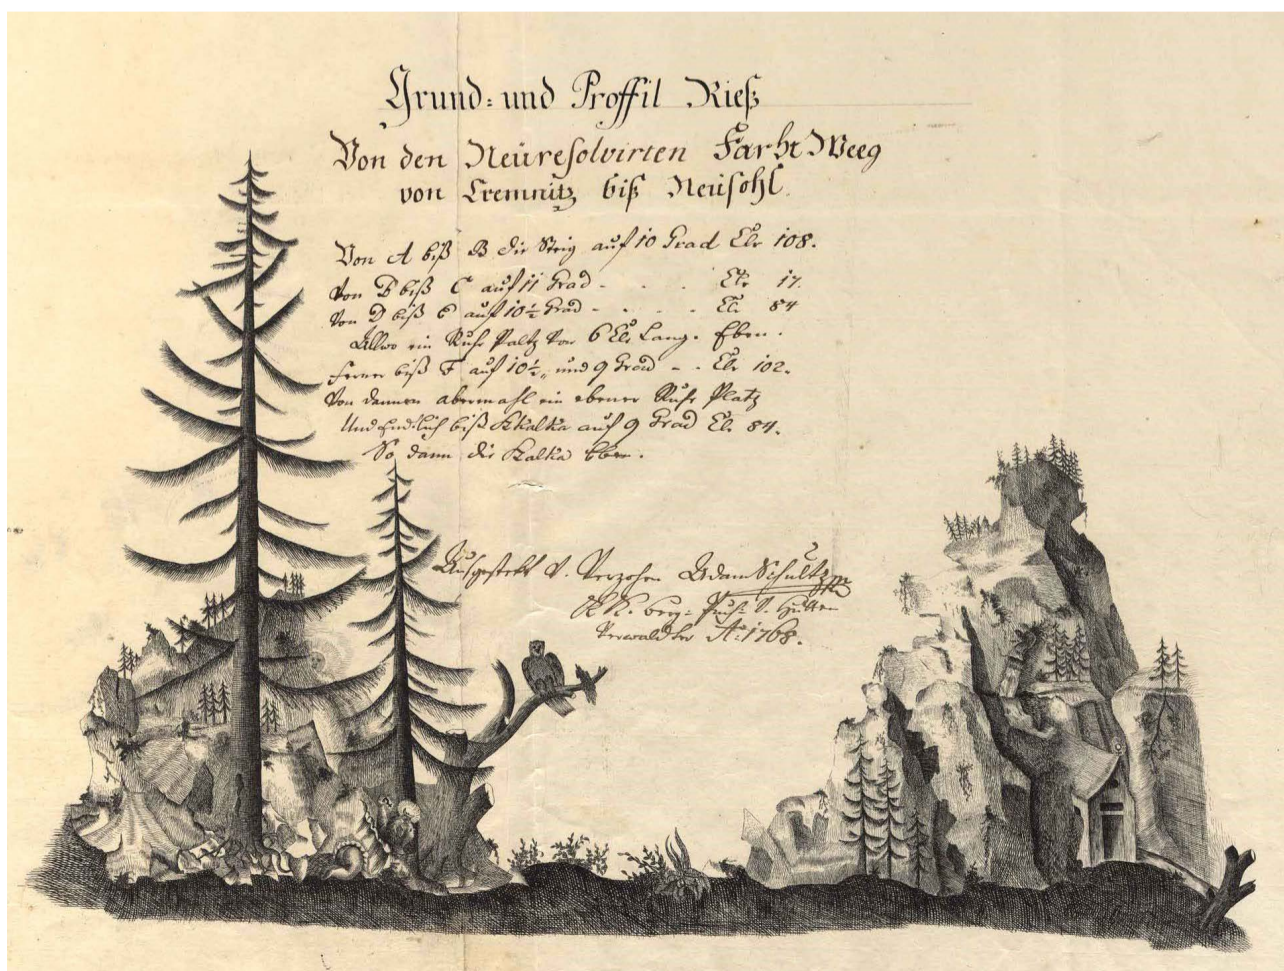 Grund= und Proffil Rieß
Von den Neüresolvirten Farht Weeg
von Cremnitz biß Neüsohl.
Von A biß B die Steig auf 10 Grad Elr 108.
Von B biß C auf 11 Grad - . . . Elr 17.
Von D biß E auf 10 ½ Grad - . . - Elr 84
Allwo ein Ruhe Paltz von 6 Elr Lang. Eben.
Ferner biß F auf 10 ½ „ und 9 Grad - . Elr 102.
Von dannen abermahl ein ebener Ruhe Platz
Und Endlich biß Skalka auf 9 Grad El. 84.
So dann die Skalka Eben.
Ausgesteckt V. Verzohen Adam Schultz
K. K. berg= V. Hütten
Verwaldter A: 1768.